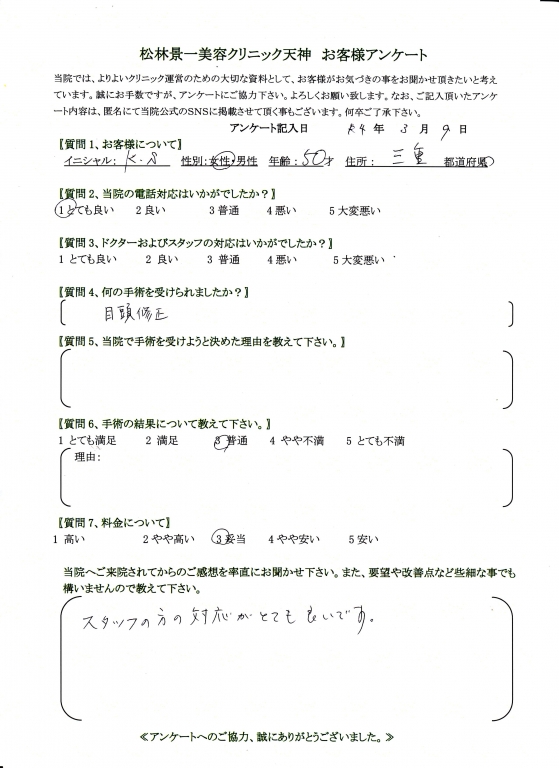 松林景一美容クリニック天神　お客様アンケート
当院では、よりよいクリニック運営のための大切な資料として、お客様がお気づきの事をお聞かせ頂きたいと考え
ています。誠にお手数ですが、アンケートにご協力下さい。よろしくお願い致します。なお、ご記入頂いたアンケ
ート内容は、匿名にて当院公式のSNSに掲載させて頂く事もございます。何卒ご了承下さい。
アンケート記入日　R4年 3月 9日
【質問1、お客様について】
イニシャル： K.S　性別：女性・男性　年齢：50才　住所：三重　都道府県
【質問2、当院の電話対応はいかがでしたか？】
1 とても良い　2 良い　3 普通　4 悪い　5 大変悪い
【質問3、ドクターおよびスタッフの対応はいかがでしたか？】
1 とても良い　2 良い　3 普通　4 悪い　5 大変悪い
【質問4、何の手術を受けられましたか？】
目頭修正
【質問5、当院で手術を受けようと決めた理由を教えて下さい。】
【質問6、手術の結果について教えて下さい。】
1 とても満足　2 満足　3 普通　4 やや不満　5 とても不満
理由：
【質問7、料金について】
1 高い　2 やや高い　3 妥当　4 やや安い　5 安い
当院へご来院されてからのご感想を率直にお聞かせ下さい。また、要望や改善点など些細な事でも
構いませんので教えて下さい。
スタッフの方の対応がとても良いです。
≪アンケートへのご協力、誠にありがとうございました。≫